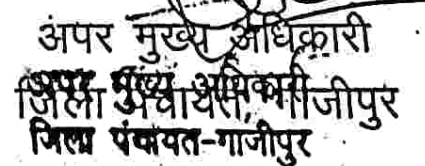 अपर मुख्य अधिकारी
अपर मुख्य अधिकारी
जिला पंचायत, गाजीपुर
जिला पंचायत-गाजीपुर